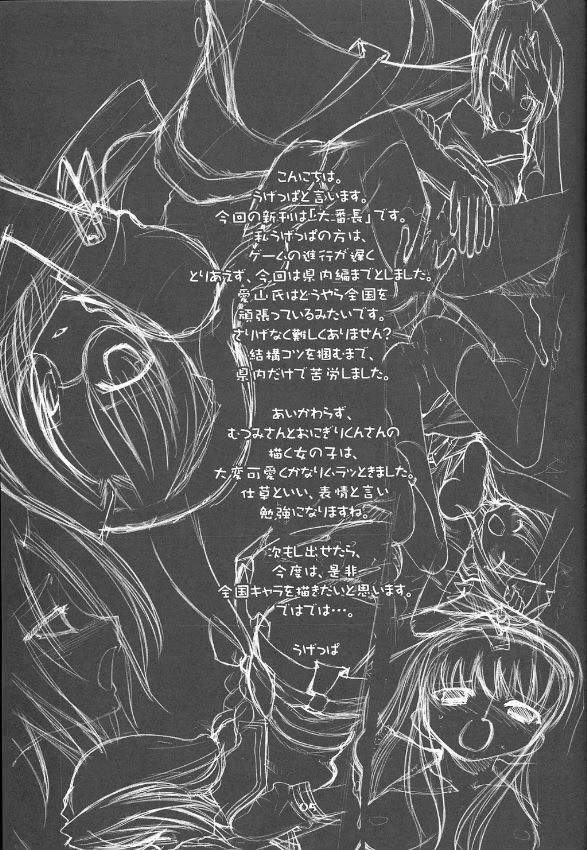 こんにちは。
うげっぱと言います。
今回の新刊は「大番長」です。
私うげっぱの方は、
ゲームの進行が遅く
とりあえず、今回は県内編までとしました。
愛山氏はどうやら全国を
頑張っているみたいです。
さりげなく難しくありません?
結構コツを掴むまで、
県内だけで苦労しました。
あいかわらず、
むつみさんとおにぎりくんさんの
描く女の子は、
大変可愛くかなりくラッときました。
仕草といい、表情と言い
勉強になりますね。
次もし出せたら、
今度は、是非
全国キャラを描きたいと思います。
ではでは…。
うげっぱ
05